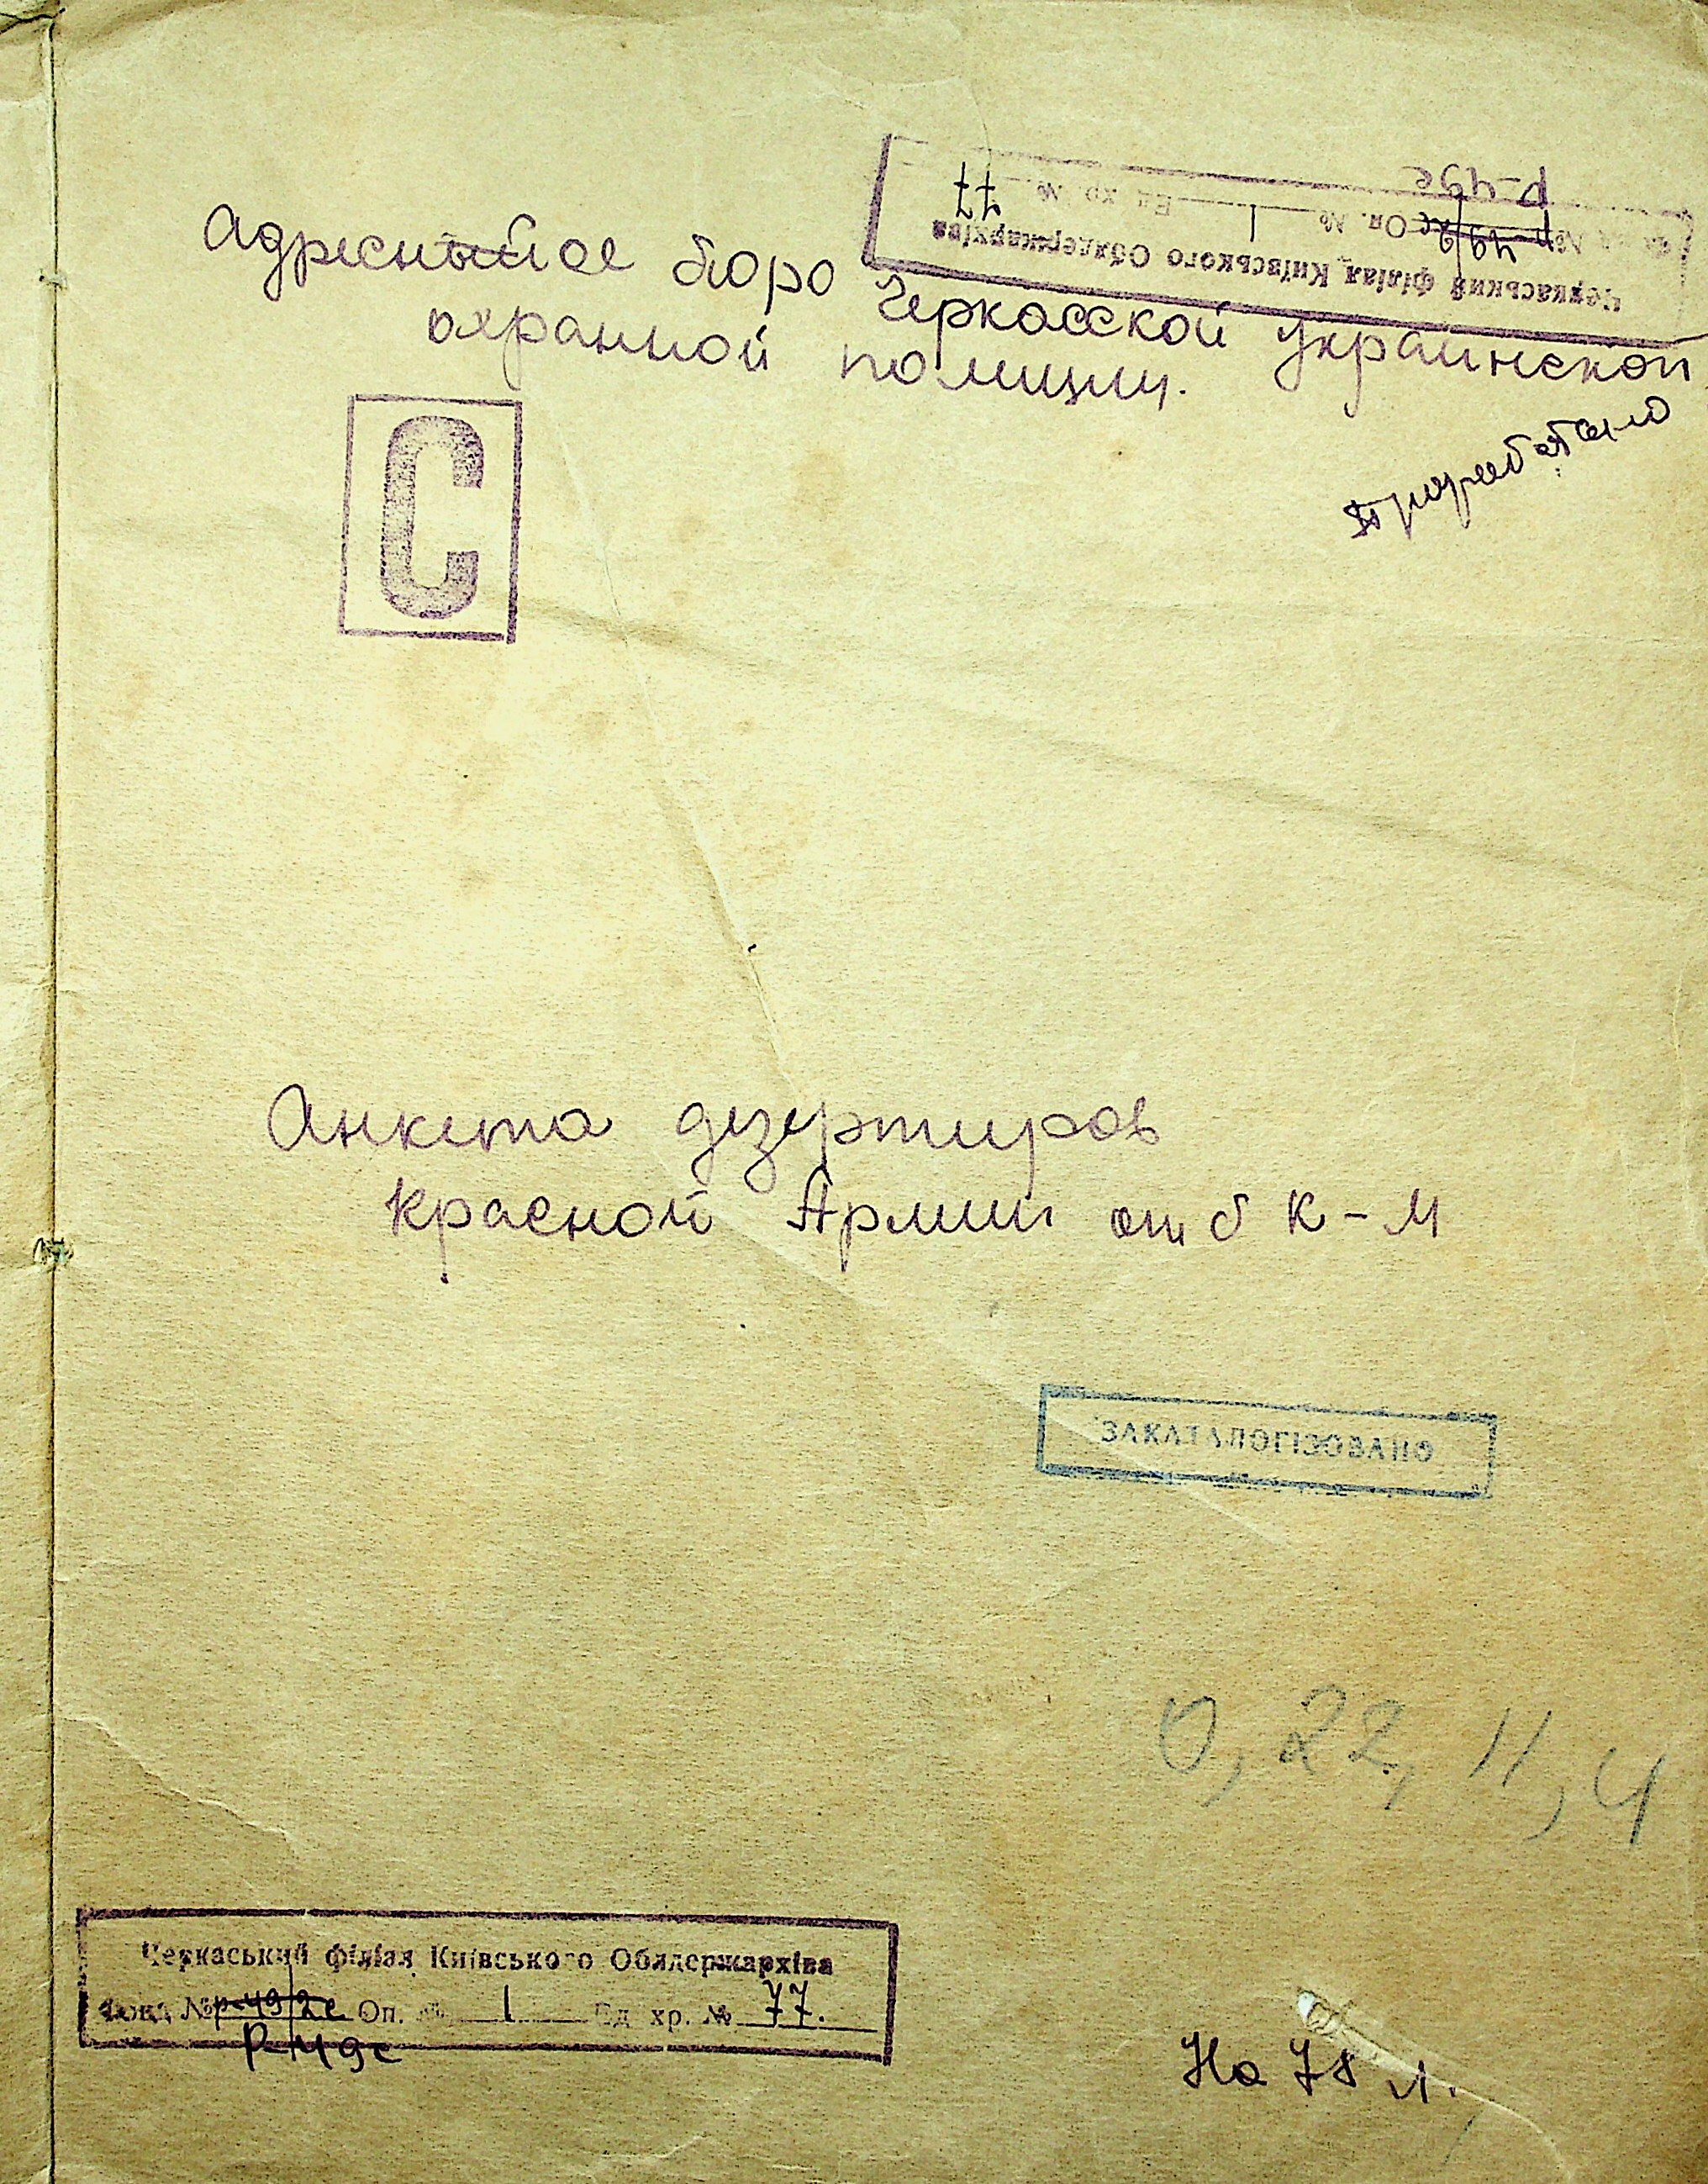 Р-49с
Фонд № Р-49/2с Оп. № 1 Ед. хр. № 77
Черкаський філіал Київського Облдержархіва
Адресное бюро Черкасской Украинской
охранной полиции.
С
Анкета дезертиров
Красной Армии от б К-М
ЗАКАТАЛОГІЗОВАНО
0, 22, 11, 4
Черкаський філіал Київського Облдержархіва
Фонд № Р-49/2с Оп. № 1 Ед. хр. № 77.
Р-49с
На л.